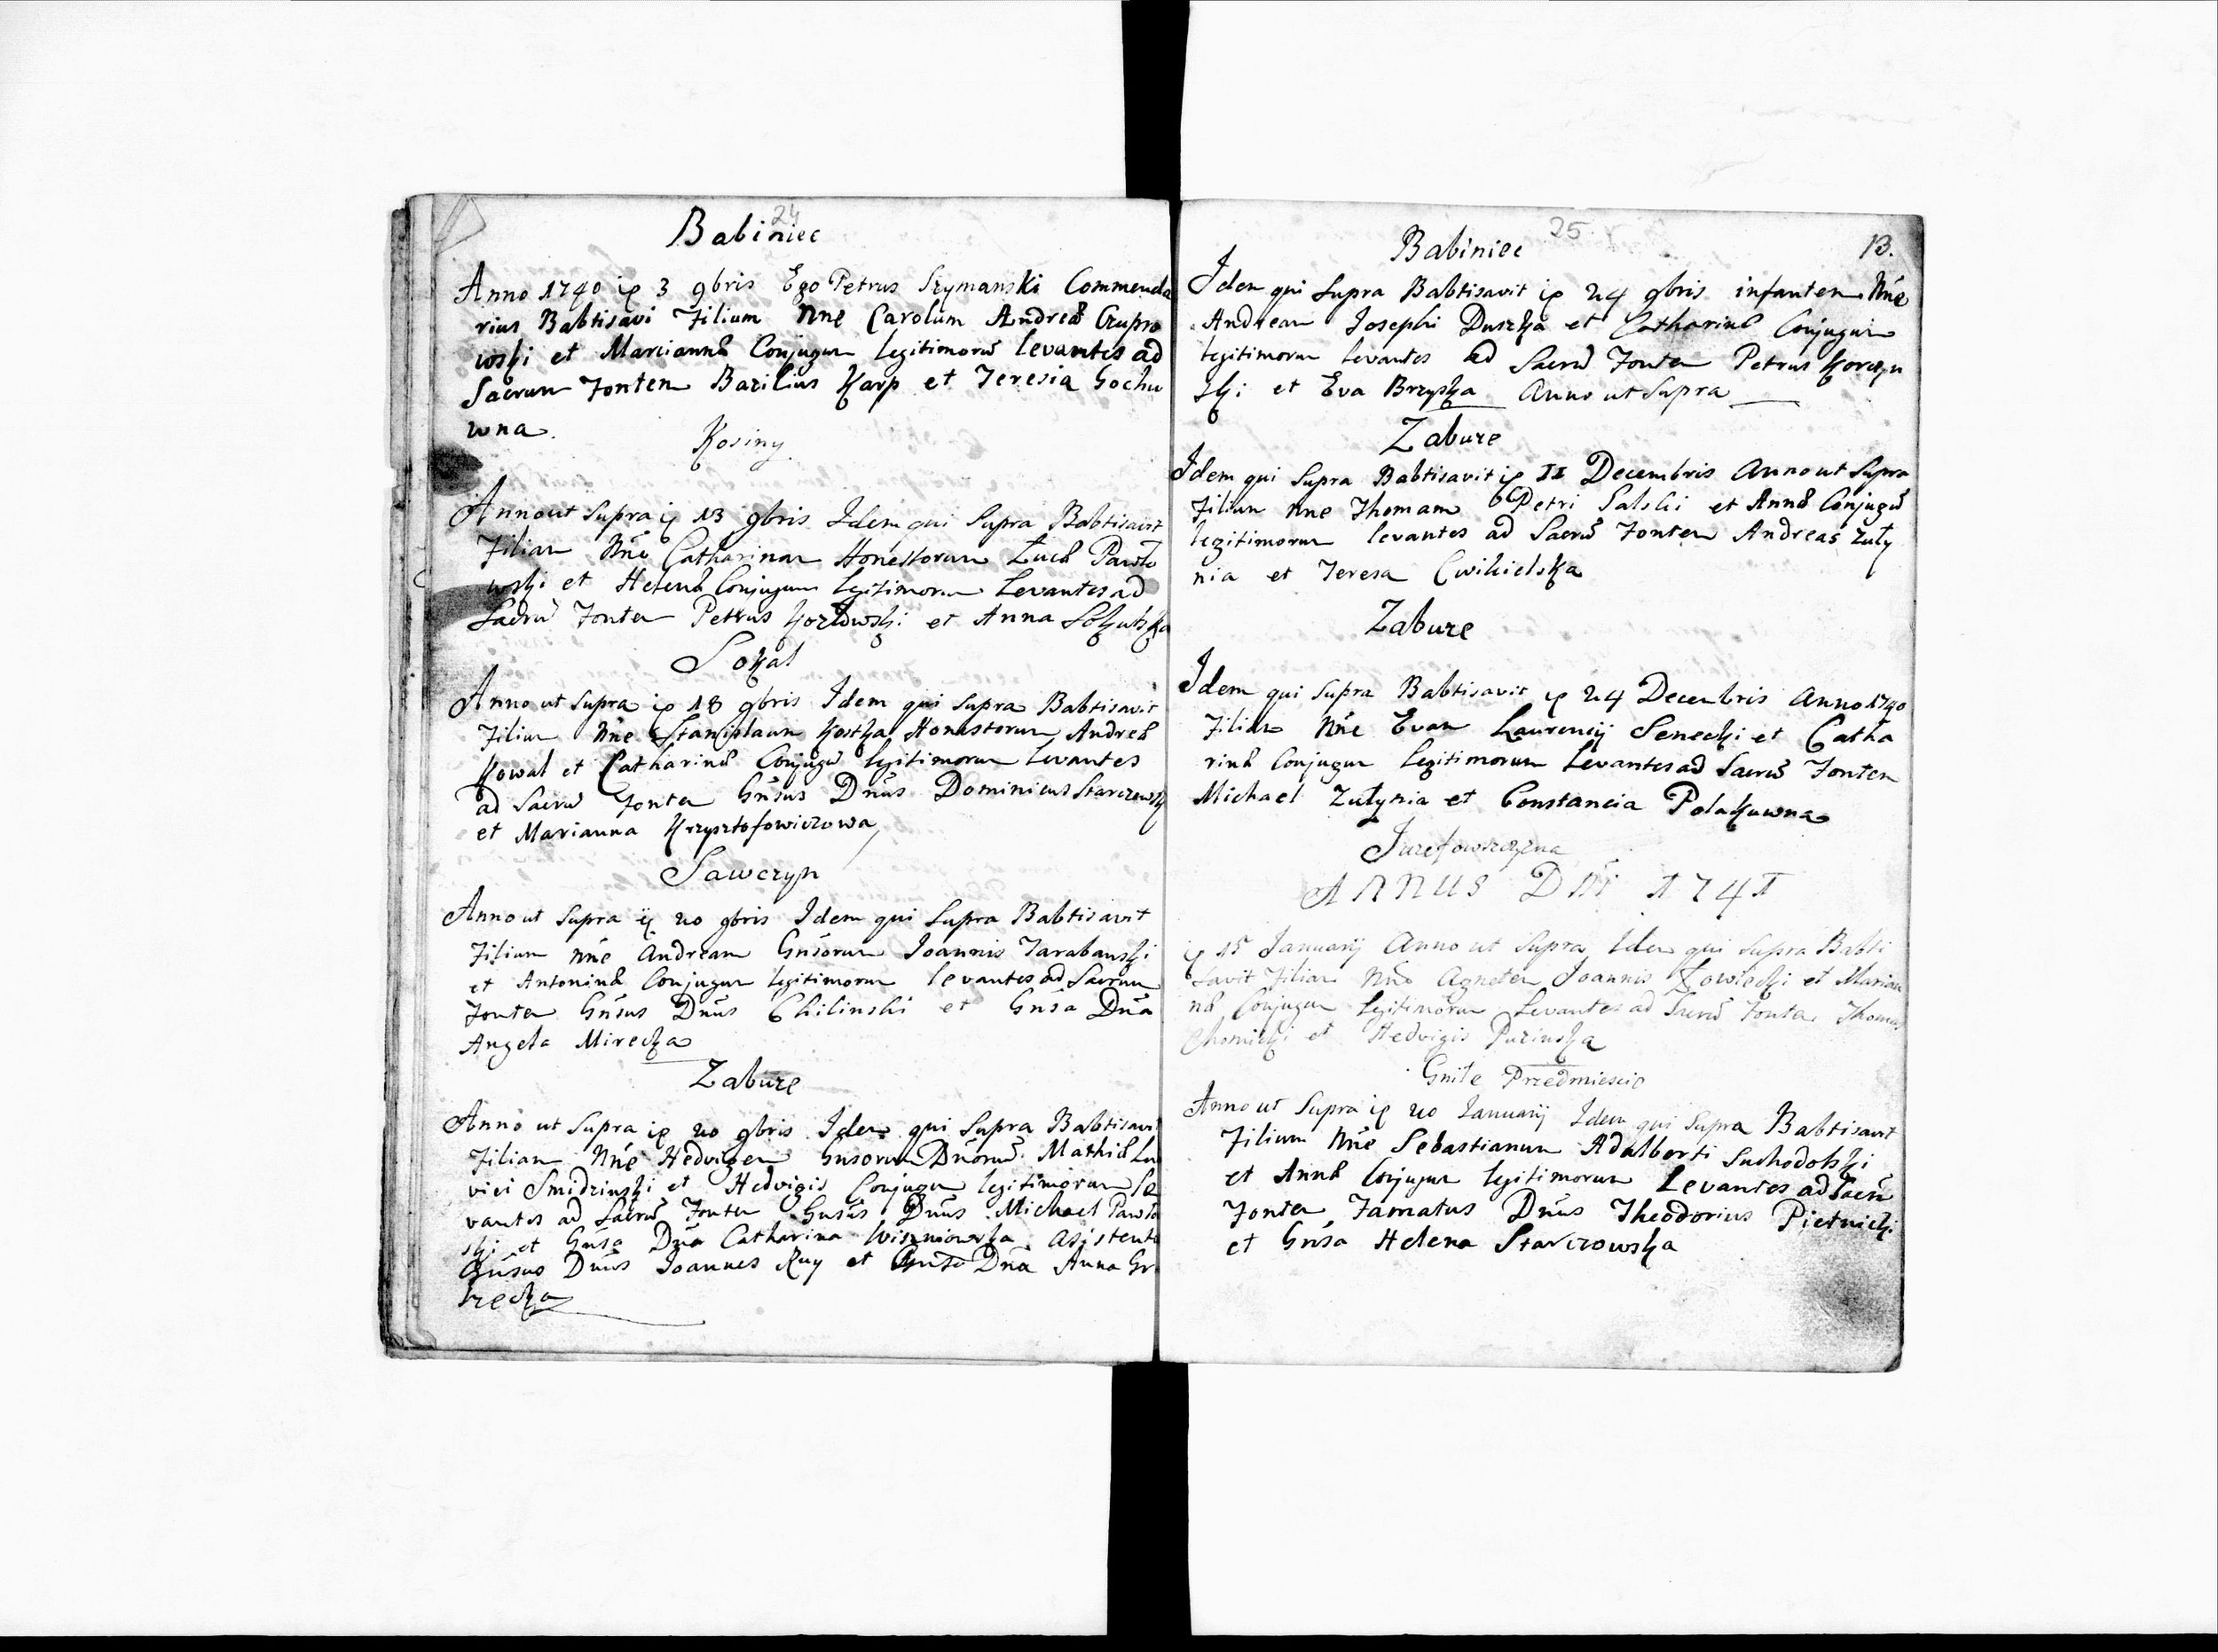 24
Babiniec
Anno 1740 iε 3 9bris Ego Petrus Szymanski Commenda
rius Babtisavi Filium Nne Carolum Andreæ Czupro
wski et Mariannæ Conjugum legitimorū levantes ad
Sacrum Fonten Bazilius Karp et Teresia Gochu
wna
Kosiny
Anno ut Supra iε 13 9bris Idem qui Supra Babtisavit
Filiam Nnē Catharinam Honestorum Lucæ Pawło
wski et Helenæ Conjugum legitimorum Levantes ad
Sacrū Fonten Petrus Kozłowski et Anna Sokulska
Sokal
Anno ut Supra iε 18 9bris Idem qui Supra Babtisavit
Filium Nne Stanislaum Kostka Honestorum Andreæ
Kowal et Catharinæ Conjugū legitimorum levantes
ad Sacrū Fonten Gnsus Dnus Dominicus Starczewsk
et Marianna Krzysztofowiczowa
Sawczyn
Anno ut Supra iε 20 9bris Idem qui Supra Babtisavit
Filium nne Andream Gnsorum Joannis Tarabanski
et Antoninæ Conjugum legitimorum levantes ad Sacrum
Fonten Gnsus Dnus Chilinski et Gnsa Dna
Angela Mirecka
Zabuze
Anno ut Supra iε 20 9bris Idem qui Supra Babtisavit
Filiam Nnē Hedvigem Gnsorum Dnorū Mathiæ Lu
vici Smidzinski et Hedvigis Conjugum legitimorum le
vantes ad Sacrū Fonten Gnsus Dnus Michael Pawło
ski et Gnsa Dna Catharina Wiszniowska Asistente
Gnsus Dnus Joannes Ruy et Gnsa Dna Anna Gr
zecka
25
13.
Babiniec
Idem qui Supra Babtisavit iε 24 9bris infantem Nnē
Andream Josephi Duszka et Catharinæ Conjugum
legitimorum levantes ad Sacrū Fonten Petrus Korczyn
ski et Eva Brzyska Anno ut Supra
Zabuze
Idem qui Supra Babtisavit iε II Decembris Anno ut Supra
Filium Nne Thomam Petri Salski et Annæ Conjugū
legitimorum levantes ad Sacrū Fonten Andreas Zuły
nia et Teresa Cwikielska
Zabuze
Idem qui Supra Babtisavit iε 24 Decembris Anno 1740
Filiam Nnē Evam Laurencij Senecki et Catha
rinæ Conjugum legitimorum Levantes ad Sacrū Fonten
Michael Zułynia et Constancia Polakuwna
Juzefowszczyzna
ANNUS DNI 1741
iε 15 Januarij Anno ut Supra Idem qui Supra Babti
savit Filiam Nnē Agneten Joannis Łowiecki et Marian
næ Conjugum legitimorum Levantes ad Sacrū Fonten Thomas
Chomicki et Hedvigis Puzinska
Gniłe Przedmiescie
Anno ut Supra iε 20 Januarij Idem qui Supra Babtisavit
Filium Nnē Sebastianum Adalberti Suchodolski
et Annæ Conjugum legitimorum Levantes ad Sacrū
Fonten Famatus Dnus Theodorius Pietnicki
et Gnsa Helena Starczowska